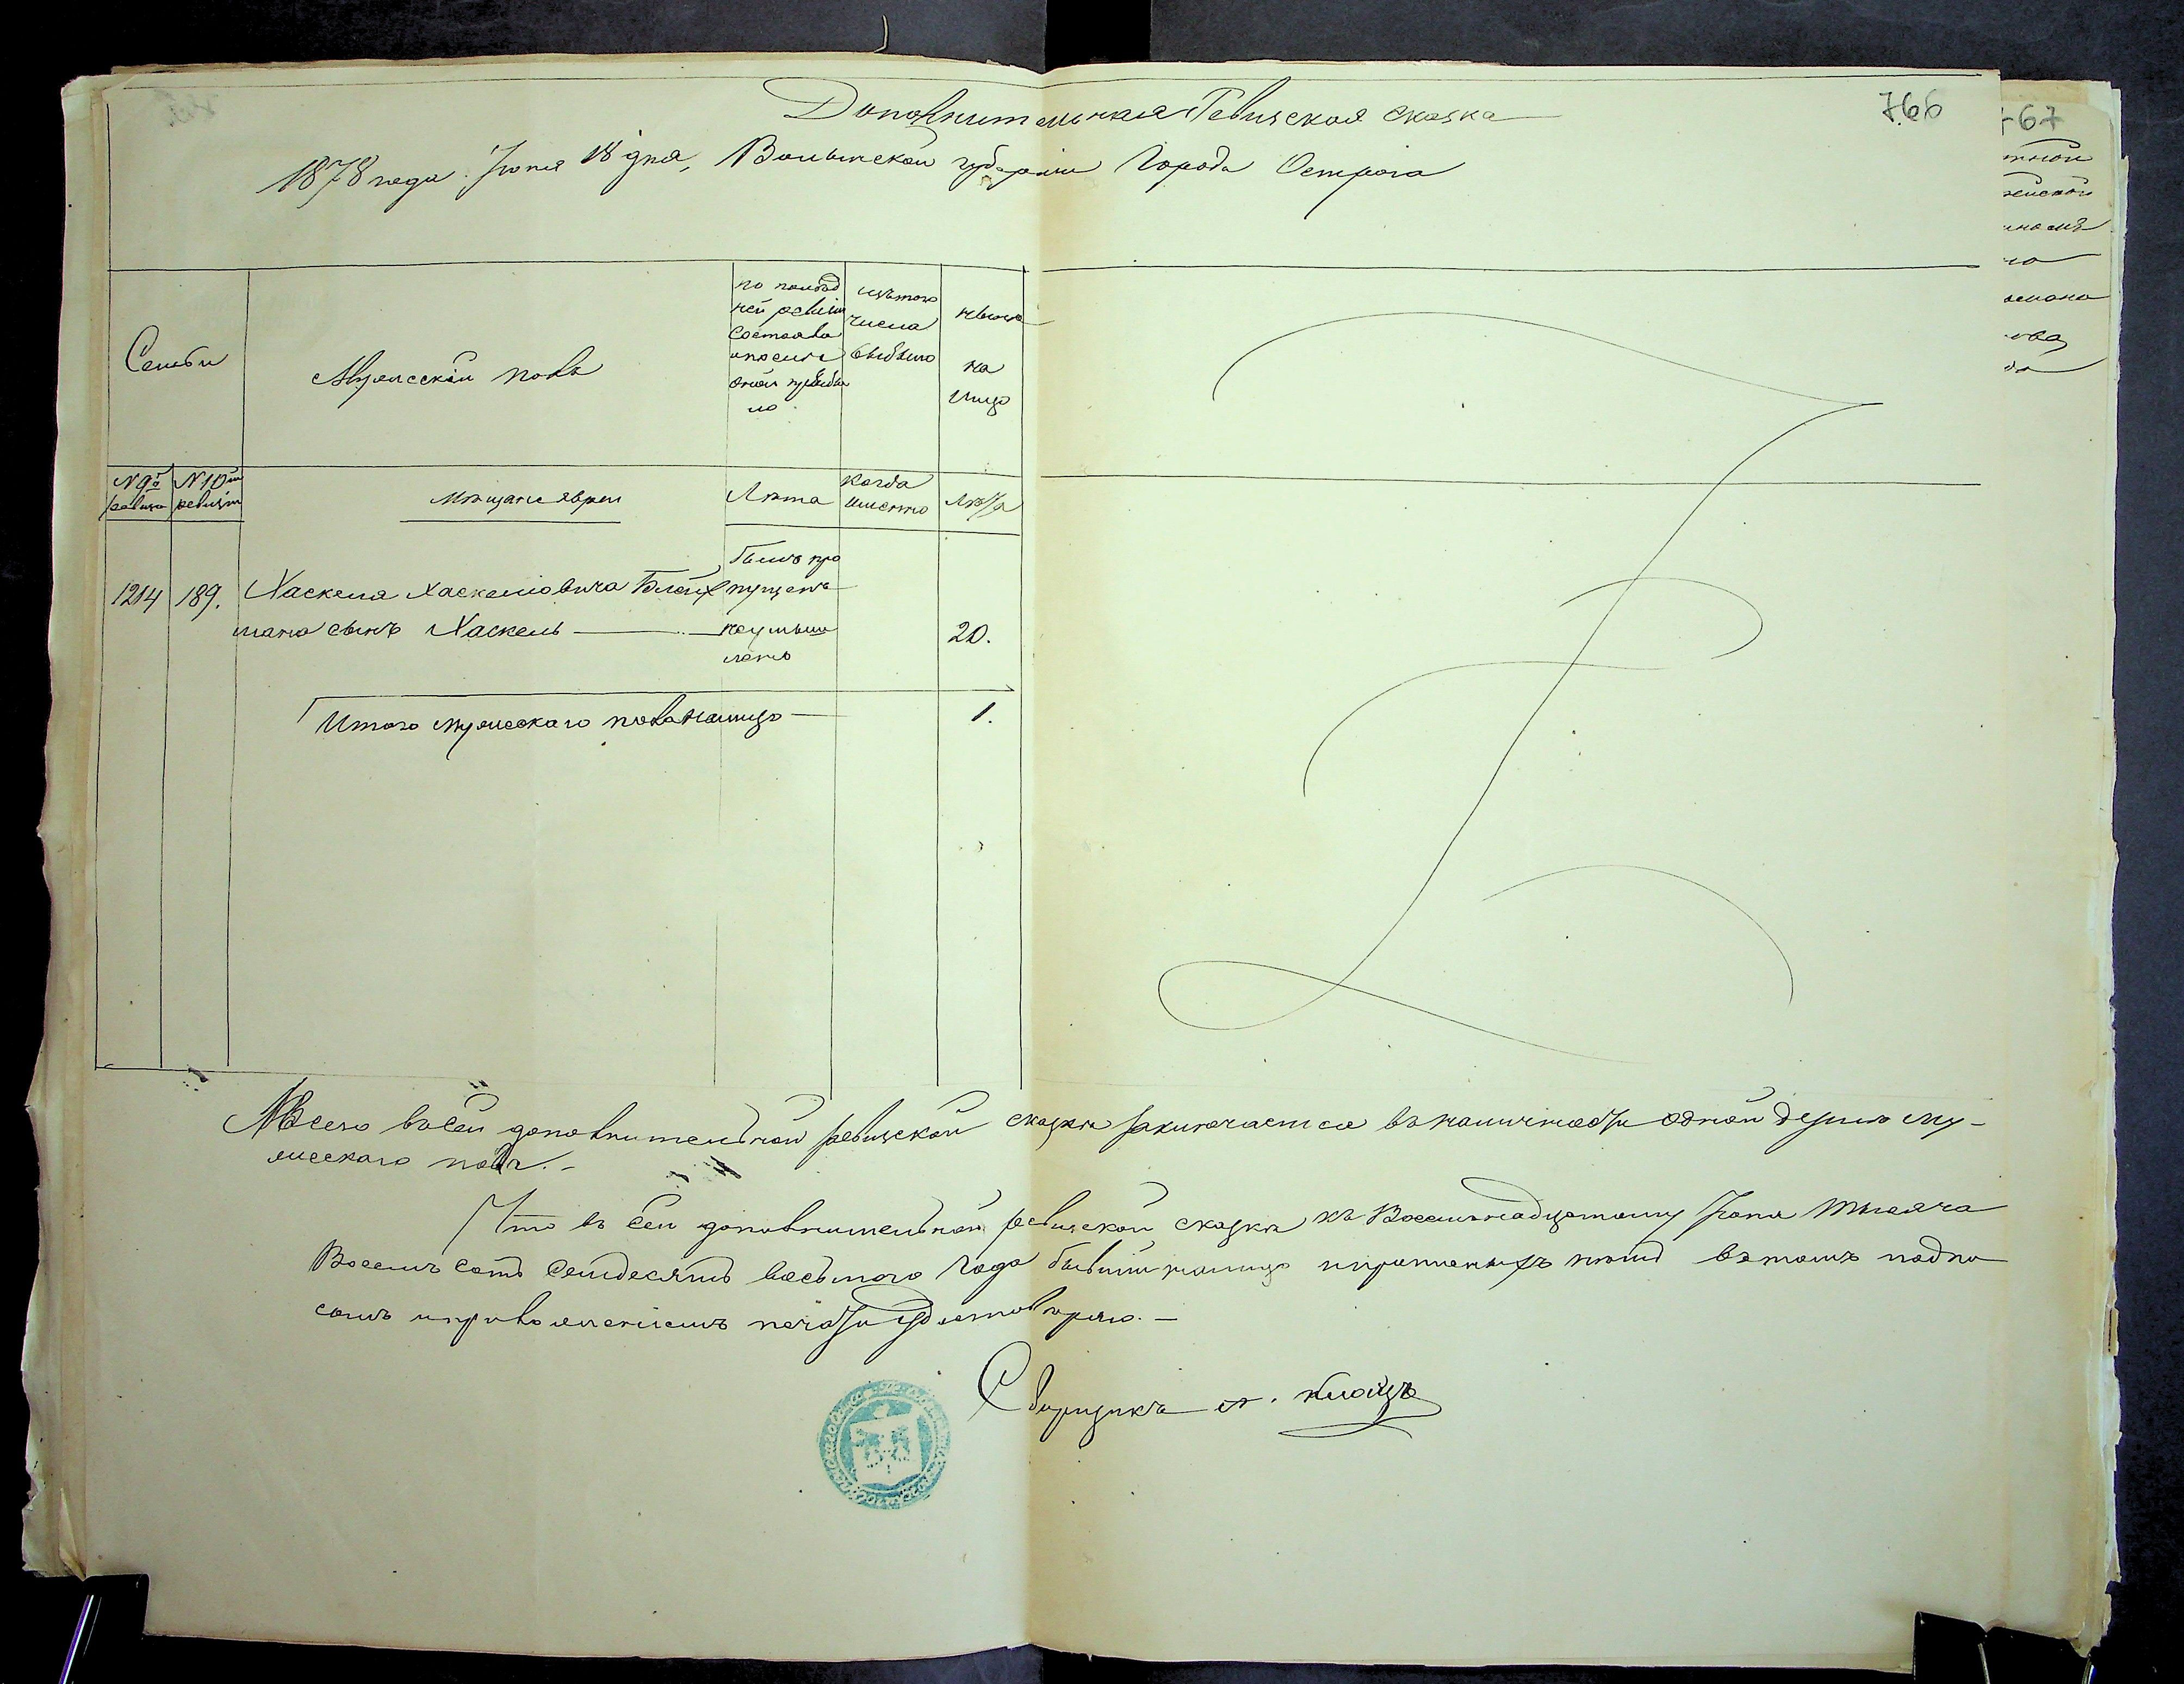 Дополнительная Ревизская сказка
766
1878 года Іюня 18 дня, Волынской губерніи Города Острога
Семьи
Мужескій полъ
по послѣд
ней ревизіи
состояло
и послѣ
оной прибы
ло
изъ того
числа
выбыло
нынѣ
на
лицо
№ 9й
ревизіи
№ 10й
ревизіи
Мѣщане евреи
Лѣта
Когда
именно
Лѣта
1214
189.
Хаскеля Хаскеліовича
мана сынъ Хаскель
былъ про
пущенъ
неумыш
ленно
20.
Итого мужескаго пола налицо
1.
Всего въ сей дополнительной ревизской сказкѣ заключается въ наличности одной души му-
жескаго пола.
Что въ сей дополнительной ревизской сказкѣ къ Восемнадцатому Іюня тысяча
Восемь сотъ семдесятъ восьмого года налицо нѣтъ въ томъ подпи
сомъ и приложеніемъ печати удостовѣряю.
Сборщикъ
767